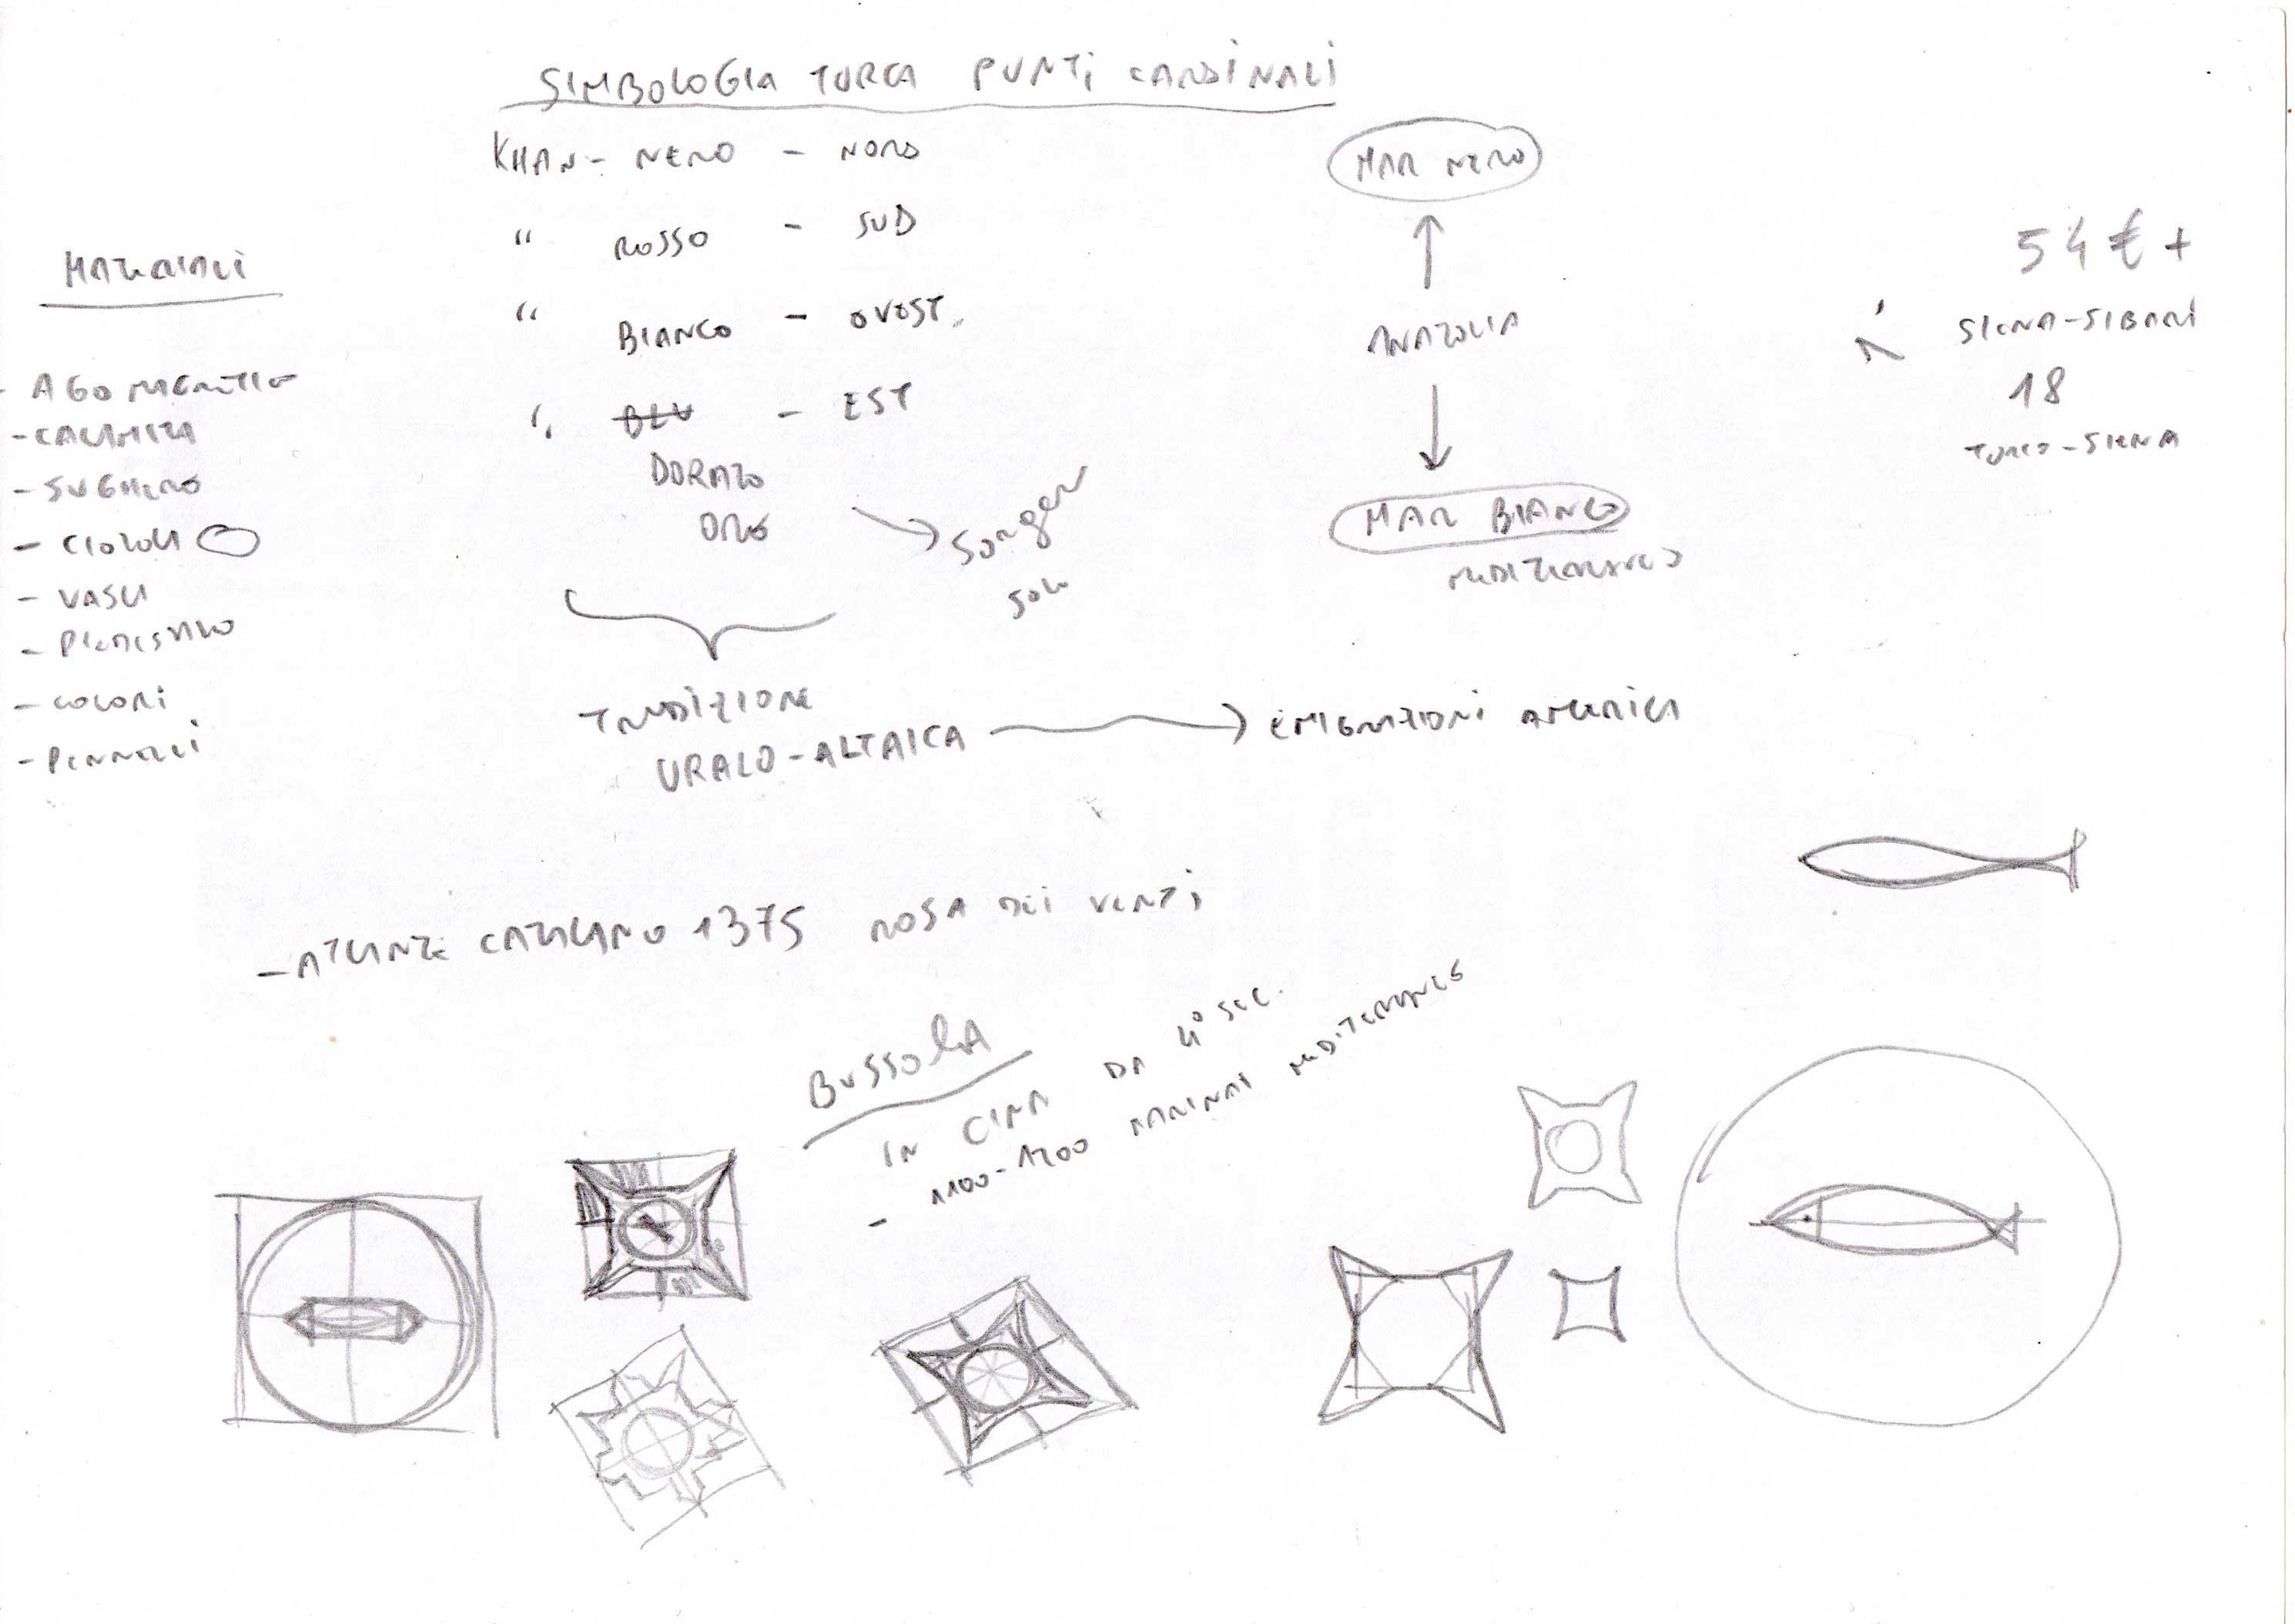 SIMBOLOGIA TURCA PUNTI CARDINALI
KHAN - NERO - NORD
" ROSSO - SUD
" BIANCO - OVEST
" BLU - EST
DORATO
ORO
SORGER
SOLE
TRADIZIONE
URALO-ALTAICA
EMIGRAZIONI AMERICA
MAR NERO
ANATOLIA
MAR BIANCO
MEDITERRANEO
54 € +
SIENA-SIBARI
18
SIENA
MATERIALI
- AGO MAGNETICO
- CALAMITA
- SUGHERO
- CIOTOLA
- VASCA
- PIEDISTALLO
- COLORI
- PENNELLI
- ATLANTE CATALANO 1375 ROSA DEI VENTI
BUSSOLA
IN CINA DA 4° SEC.
- 1100-1200 MARINAI MEDITERRANEO